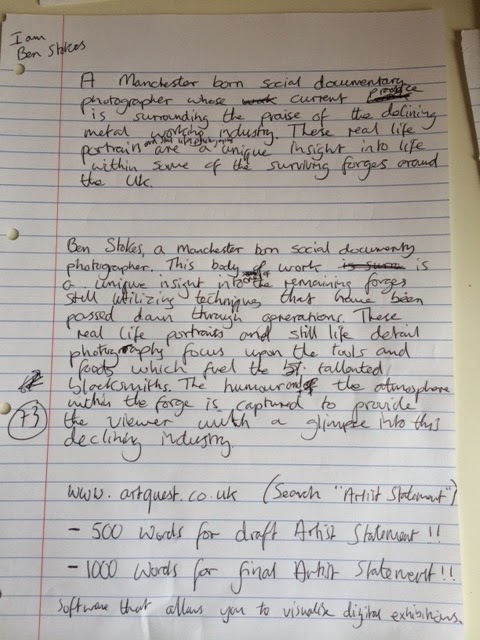 I am
Ben Stokes
A Manchester born social documentary
photographer whose work current practice
is surrounding the praise of the declining
metal working industry. These real life
portrait and still life photography are a unique insight into life
within some of the surviving forges around
the UK.
Ben Stokes, a Manchester born social documenty
photographer. This body of work is
a unique insight into the remaining forges
still utilizing techniques that have been
passed down through generations. These
real life portraits and still life detail
photography focus upon the tools and
foods which fuel the tallented
blacksmiths. The humour and the atmosphere
within the forge is captured to provide
73
the viewer with a glimpse into this
declining industry.
www.artquest.co.uk (Search "Artist Statement")
- 500 words for draft Artist Statement!!
- 1000 words for final Artist Statement!!
Software that allows you to visualise digital exhibitions.